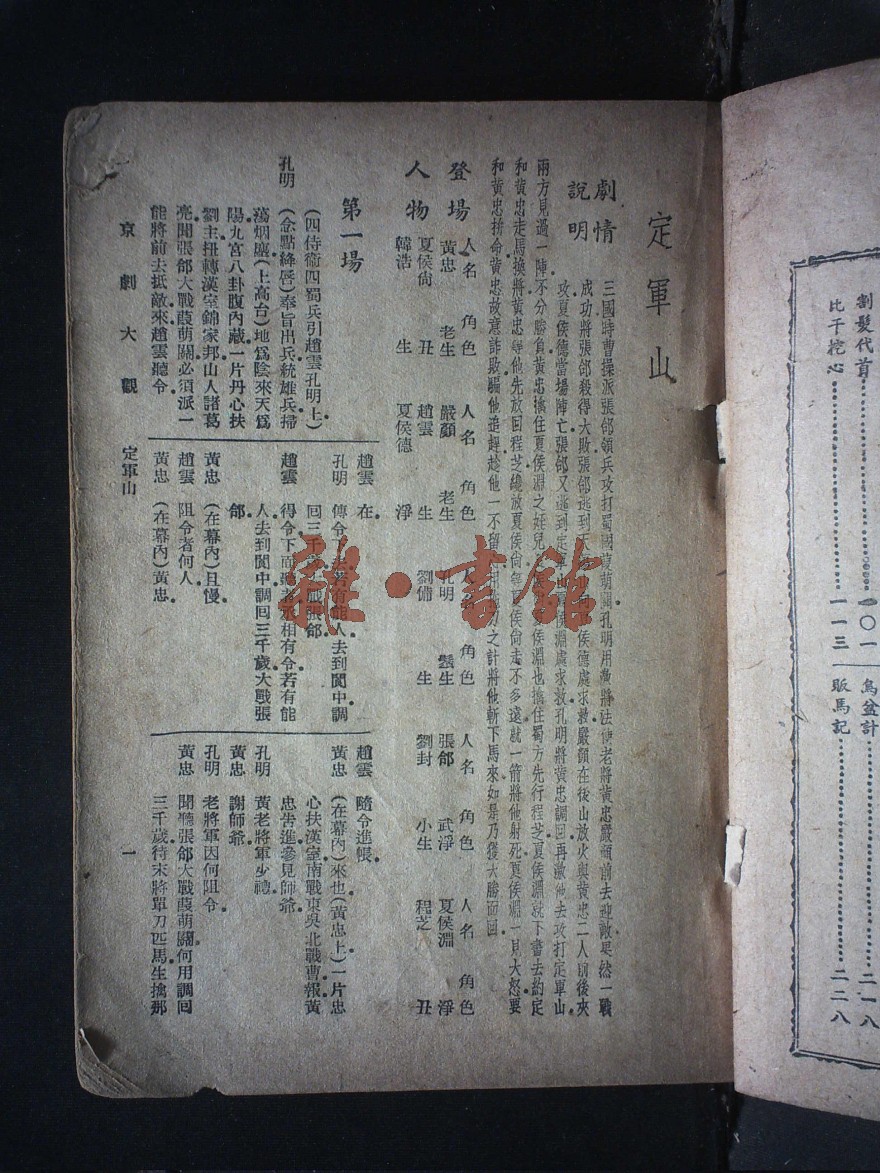 定軍山
劇情說明
三國時曹操派張郃領兵攻打蜀國葭萌關孔明用激將法使老將黃忠嚴顏前去迎敵果然一戰
成功將張郃殺得大敗張郃逃到天 侯德處求救嚴顏在後山放火與黃忠二人前後夾
攻夏侯德當場陣亡張郃又逃到定軍山夏侯淵處求救孔明將黃忠調回再激他去攻打定軍山
兩方見過一陣不分勝負黃忠擒住夏侯淵之姪兒 侯淵也擒住蜀方先行程芝夏侯淵就下書去約定
和黃忠走馬換將黃忠等他先放回程芝纔放夏侯尚等夏侯尚走不多遠就一箭將他射死夏侯淵一見大怒要
和黃忠拚命黃忠故意詐敗騙他追趕趁他一不留 之計將他斬下馬來如是乃獲大勝而回
登場人物
人名 角色 人名 角色 人名 角色 人名 角色 人名 角色
黃忠 老生 嚴顏 老生 孔明 鬚生 張郃 武淨 夏侯淵 淨
夏侯尚 丑 趙雲 生 劉備 生 劉封 小生 程芝 丑
韓浩 生 夏侯德 淨
第一場
(四侍衞四蜀兵引趙雲孔明上)
孔明 (念點絳唇)奉旨出兵統雄兵掃
蕩烟塵(上高台)地爲陰來天爲
陽九宮八卦腹內藏一片丹心扶
劉主扭轉漢室錦家邦山人諸葛
亮聞張郃大戰葭萌關必須派一
能將前去抵敵來趙雲聽令
趙雲 在
孔明 傳令下去若有能人去到閬中調
回三千歲大戰張郃
趙雲 得令下面聽者丞相有令若有能
人去到閬中調回三千歲大戰張
郃
黃忠 (在幕內)且慢
趙雲 阻令者何人
黃忠 (在幕內)黃忠
趙雲 隨令進帳
黃忠 (在幕內)來也(黃忠上)一片忠
心扶漢室南戰東吳北戰曹報黃
忠告進參見師爺
孔明 黃老將軍少禮
黃忠 謝師爺
孔明 老將軍因何阻令
黃忠 聞聽張郃大戰葭萌關何用調回
三千歲待末將單刀匹馬生擒那
京劇大觀 定軍山 一
割髮代首 一〇一
比干挖心 一一三
烏盆計 二一八
販馬記 二二八
雜·書館